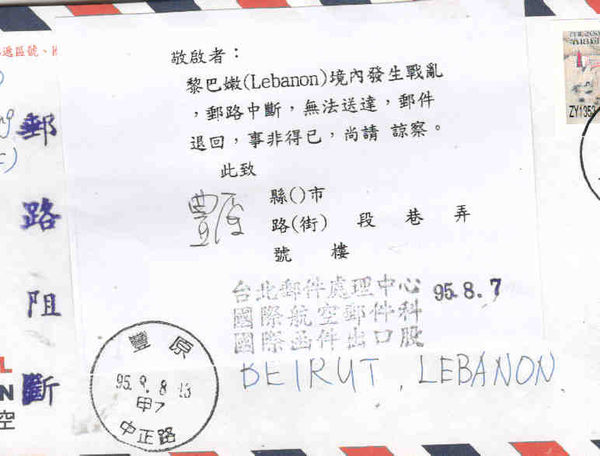 敬啟者：
黎巴嫩(Lebanon)境內發生戰亂
，郵路中斷，無法送達，郵件
退回，事非得已，尚請 諒察。
此致
豐原 縣()市
路(街) 段 巷 弄
號 樓
台北郵件處理中心 95.8.7
國際航空郵件科
國際函件出口股
BEIRUT, LEBANON
郵路阻斷
遞區號、
豐原
95.8.8 13
甲7
中正路
空